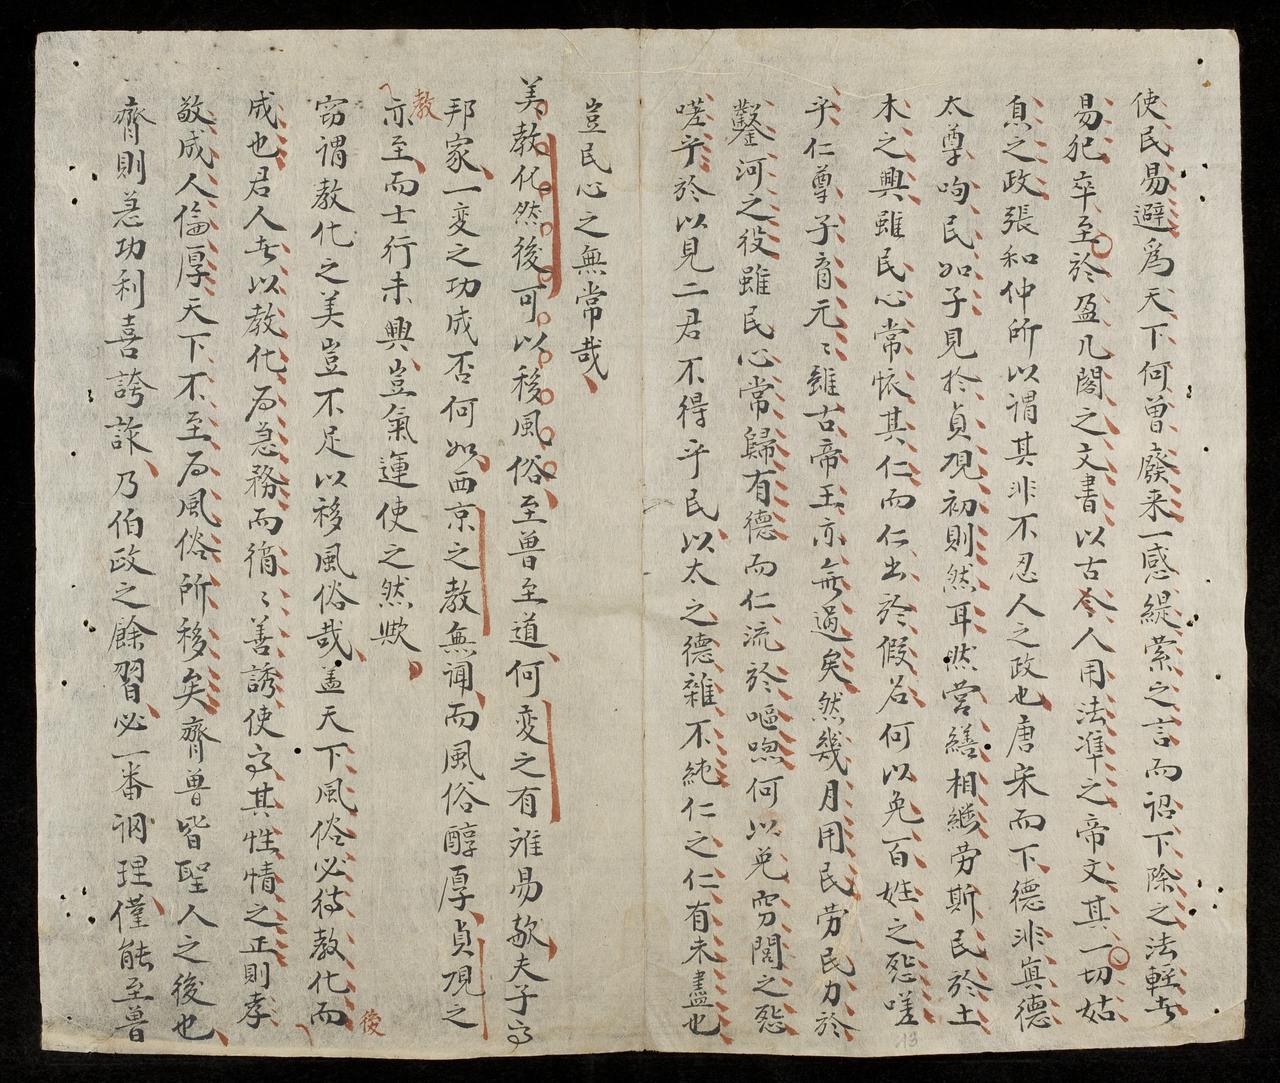 使民易避爲天下何曽廢来一感緹縈之言而詔下除之法輕者
易犯卒至於盈几閣之文書以古今人用法準之帝文其一切姑
息之政張和仲所以謂其非不忍人之政也唐宋而下德非眞德
太尊呴民如子見於貞观初則然耳然营繕相継劳斯民於土
木之興雖民心常懷其仁而仁出於假名何以免百姓之怨嗟
乎仁尊子育元〻雖古帝王亦無過矣然幾月用民劳民力於
鑿河之役雖民心常歸有德而仁流於嘔喣何以免雱閭之怨
嗟乎於以見二君不得乎民以太之德雜不純仁之仁有未盡也
豈民心之無常哉
美教化然後可以移風俗至曽至道何变之有难易歟夫子
邦家一变之功成否何如西京之教無闻而風俗醇厚貞观之
教
亦至而士行未興豈氣運使之然歟
窃谓教化之美豈不足以移風俗哉盖天下風俗必待教化而
後
成也君人者以教化为急務而循〻善誘使其性情之正則孝
敬成人倫厚天下不至为風俗所移矣齊曽皆聖人之後也
齊則急功利喜誇詐乃伯政之餘習必一番调理僅能至曽
13